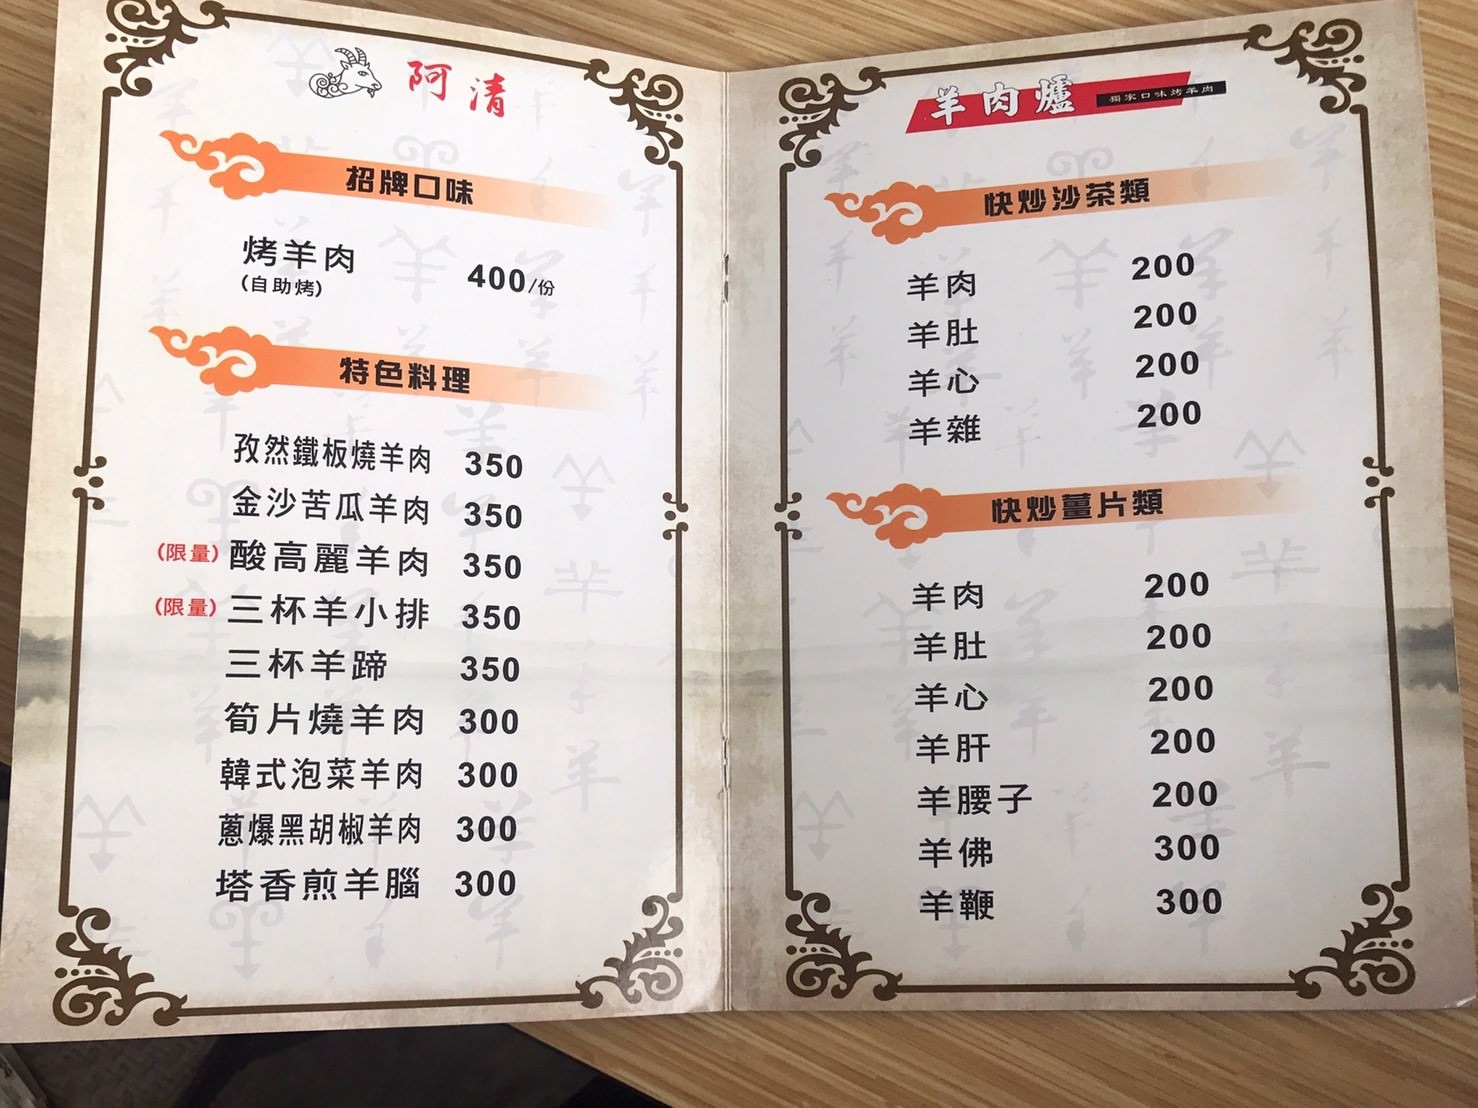 阿清
招牌口味
烤羊肉 400/份
(自助烤)
特色料理
孜然鐵板燒羊肉 350
金沙苦瓜羊肉 350
(限量) 酸高麗羊肉 350
(限量) 三杯羊小排 350
三杯羊蹄 350
筍片燒羊肉 300
韓式泡菜羊肉 300
蔥爆黑胡椒羊肉 300
塔香煎羊腦 300
羊肉爐 獨家口味烤羊肉
快炒沙茶類
羊肉 200
羊肚 200
羊心 200
羊雜 200
快炒薑片類
羊肉 200
羊肚 200
羊心 200
羊肝 200
羊腰子 200
羊佛 300
羊鞭 300